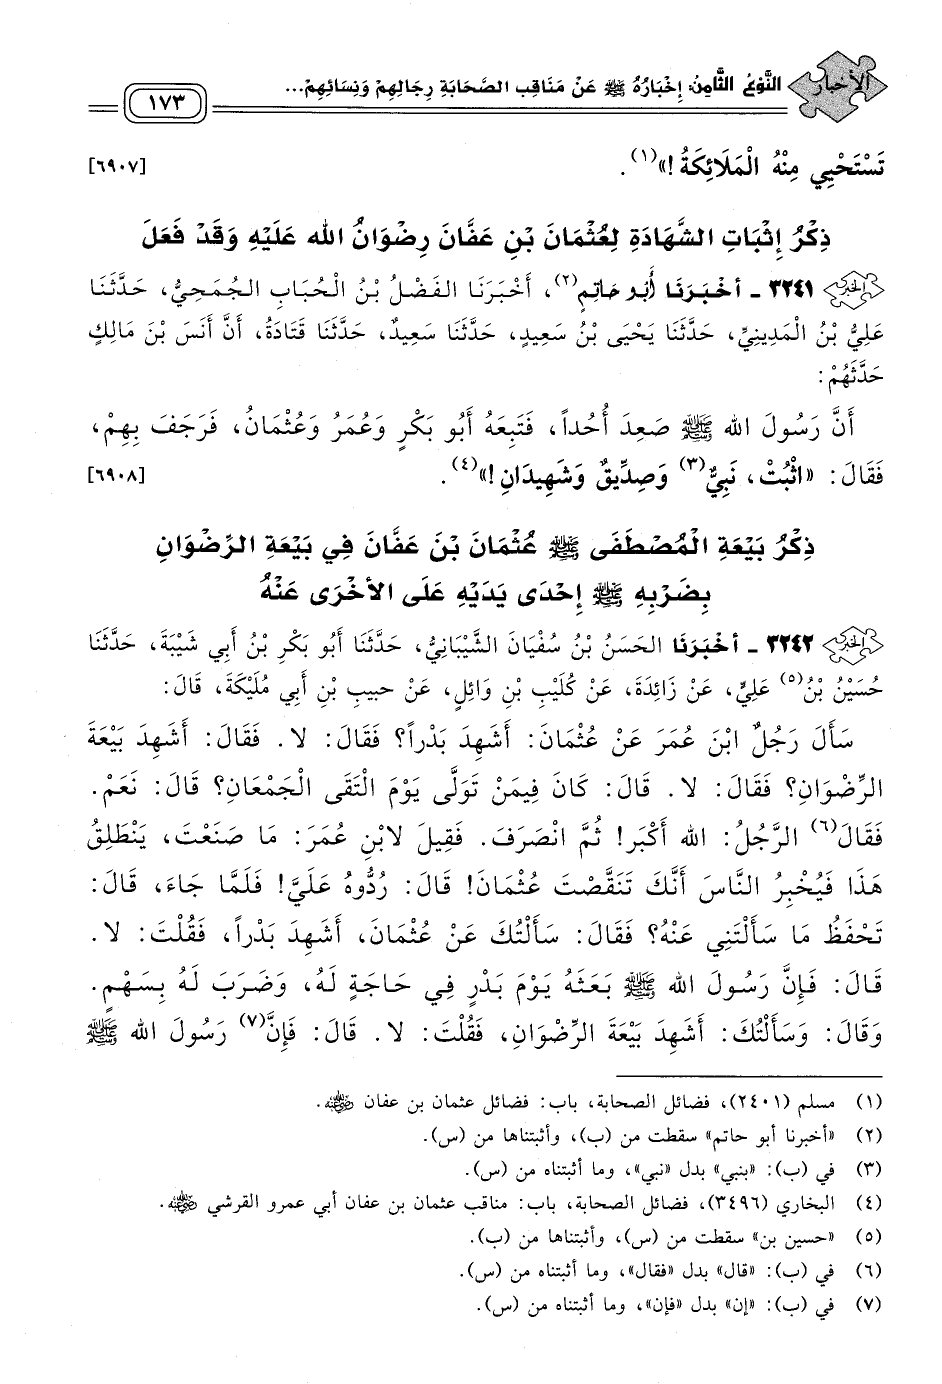 الأخبار
النَّوْعُ الثَّامِنُ: إِخْبَارُهُ ﷺ عَنْ مَنَاقِبِ الصَّحَابَةِ رِجَالِهِمْ وَنِسَائِهِمْ...
١٧٣
تَسْتَحْيِي مِنْهُ الْمَلَائِكَةُ!»(١). [٦٩٠٧]
ذِكْرُ إِثْبَاتِ الشَّهَادَةِ لِعُثْمَانَ بْنِ عَفَّانَ رِضْوَانُ الله عَلَيْهِ وَقَدْ فَعَلَ
٣٢٤١ - أَخْبَرَنَا أَبُو حَاتِمٍ(٢)، أَخْبَرَنَا الفَضْلُ بْنُ الْحُبَابِ الجُمَحِيُّ، حَدَّثَنَا
عَلِيُّ بْنُ الْمَدِينِيِّ، حَدَّثَنَا يَحْيَى بْنُ سَعِيدٍ، حَدَّثَنَا سَعِيدٌ، حَدَّثَنَا قَتَادَةُ، أَنَّ أَنَسَ بْنَ مَالِكٍ
حَدَّثَهُمْ:
أَنَّ رَسُولَ الله ﷺ صَعِدَ أُحُداً، فَتَبِعَهُ أَبُو بَكْرٍ وَعُمَرُ وَعُثْمَانُ، فَرَجَفَ بِهِمْ،
فَقَالَ: «اثْبُتْ، نَبِيٌّ(٣) وَصِدِّيقٌ وَشَهِيدَانِ!»(٤). [٦٩٠٨]
ذِكْرُ بَيْعَةِ الْمُصْطَفَى ﷺ عُثْمَانَ بْنَ عَفَّانَ فِي بَيْعَةِ الرِّضْوَانِ
بِضَرْبِهِ ﷺ إِحْدَى يَدَيْهِ عَلَى الأُخْرَى عَنْهُ
٣٢٤٢ - أَخْبَرَنَا الحَسَنُ بْنُ سُفْيَانَ الشَّيْبَانِيُّ، حَدَّثَنَا أَبُو بَكْرِ بْنُ أَبِي شَيْبَةَ، حَدَّثَنَا
حُسَيْنُ بْنُ(٥) عَلِيٍّ، عَنْ زَائِدَةَ، عَنْ كُلَيْبِ بْنِ وَائِلٍ، عَنْ حبيبِ بْنِ أَبِي مُلَيْكَةَ، قَالَ:
سَأَلَ رَجُلٌ ابْنَ عُمَرَ عَنْ عُثْمَانَ: أَشَهِدَ بَدْراً؟ فَقَالَ: لا. فَقَالَ: أَشَهِدَ بَيْعَةَ
الرِّضْوَانِ؟ فَقَالَ: لا. قَالَ: كَانَ فِيمَنْ تَوَلَّى يَوْمَ الْتَقَى الْجَمْعَانِ؟ قَالَ: نَعَمْ.
فَقَالَ(٦) الرَّجُلُ: الله أَكْبَر! ثُمَّ انْصَرَفَ. فَقِيلَ لابْنِ عُمَرَ: مَا صَنَعْتَ، يَنْطَلِقُ
هَذَا فَيُخْبِرُ النَّاسَ أَنَّكَ تَنَقَّصْتَ عُثْمَانَ! قَالَ: رُدُّوهُ عَلَيَّ! فَلَمَّا جَاءَ، قَالَ:
تَحْفَظُ مَا سَأَلْتَنِي عَنْهُ؟ فَقَالَ: سَأَلْتُكَ عَنْ عُثْمَانَ، أَشَهِدَ بَدْراً، فَقُلْتَ: لا.
قَالَ: فَإِنَّ رَسُولَ الله ﷺ بَعَثَهُ يَوْمَ بَدْرٍ فِي حَاجَةٍ لَهُ، وَضَرَبَ لَهُ بِسَهْمٍ.
وَقَالَ: وَسَأَلْتُكَ: أَشَهِدَ بَيْعَةَ الرِّضْوَانِ، فَقُلْتَ: لا. قَالَ: فَإِنَّ(٧) رَسُولَ الله ﷺ
(١) مسلم (٢٤٠١)، فضائل الصحابة، باب: فضائل عثمان بن عفان رضي الله عنه.
(٢) «أخبرنا أبو حاتم» سقطت من (ب)، وأثبتناها من (س).
(٣) في (ب): «بنبي» بدل «نبي»، وما أثبتناه من (س).
(٤) البخاري (٣٤٩٦)، فضائل الصحابة، باب: مناقب عثمان بن عفان أبي عمرو القرشي رضي الله عنه.
(٥) «حسين بن» سقطت من (س)، وأثبتناها من (ب).
(٦) في (ب): «قال» بدل «فقال»، وما أثبتناه من (س).
(٧) في (ب): «إن» بدل «فإن»، وما أثبتناه من (س).